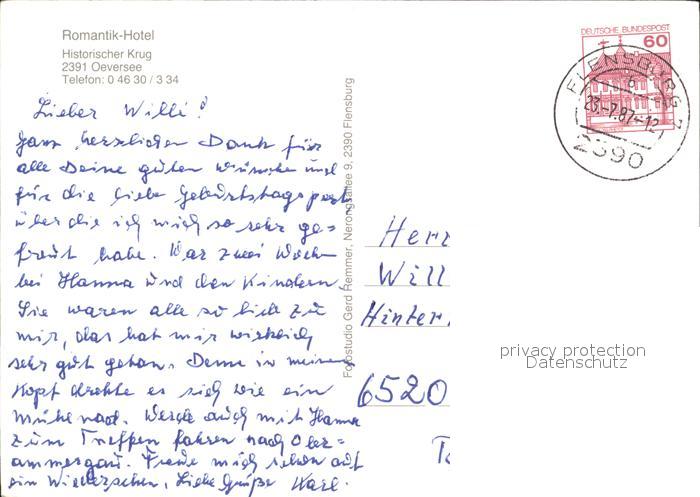 Romantik-Hotel
Historischer Krug
2391 Oeversee
Telefon: 0 46 30 / 3 34
Lieber Willi!
Ganz herzlichen Dank für
alle Deine guten Wünsche und
für die liebe Geburtstagspost
über die ich mich so sehr ge=
freut habe. War zwei Wochen
bei Hanna und den Kindern,
Sie waren alle so lieb zu
mir, das hat mir wirklich
sehr gut getan. Denn in meinem
Kopf drehte es sich wie ein
Mühlenrad. Werde auch mit Hanna
zum Treffen fahren nach Ober=
ammergau. Freue mich schon auf
ein Wiedersehen. Liebe Grüße Karl.
Fotostudio Gerd Remmer, Nerongsallee 9, 2390 Flensburg
DEUTSCHE BUNDESPOST
60
FLENSBURG 7
b
23.-7.87-12
2390
Herr
Will
Hinter
6520
privacy protection
Datenschutz